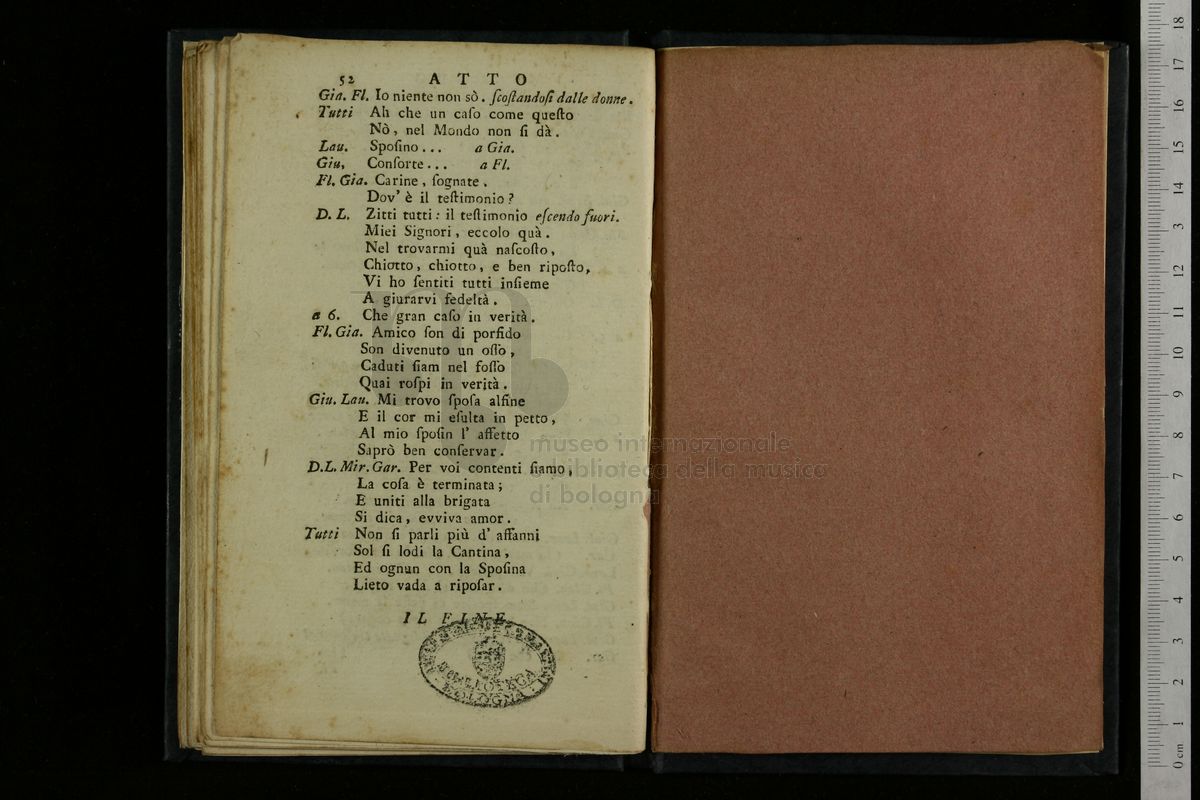 52 ATTO
Gia. Fl. Io niente non sò. ſcoſtandoſi dalle donne.
Tutti Ah che un caſo come queſto
Nò, nel Mondo non ſi dà.
Lau. Spoſino... a Gia.
Giu. Conſorte... a Fl.
Fl. Gia. Carine, ſognate.
Dov' è il teſtimonio?
D. L. Zitti tutti: il teſtimonio eſcendo fuori.
Miei Signori, eccolo quà.
Nel trovarmi quà naſcoſto,
Chiotto, chiotto, e ben ripoſto,
Vi ho ſentiti tutti inſieme
A giurarvi fedeltà.
a 6. Che gran caſo in verità.
Fl. Gia. Amico ſon di porfido
Son divenuto un oſſo,
Caduti ſiam nel foſſo
Quai roſpi in verità.
Giu. Lau. Mi trovo ſpoſa alfine
E il cor mi eſulta in petto,
Al mio ſpoſin l' affetto
Saprò ben conſervar.
D. L. Mir. Gar. Per voi contenti ſiamo,
La coſa è terminata;
E uniti alla brigata
Si dica, evviva amor.
Tutti Non ſi parli più d' affanni
Sol ſi lodi la Cantina,
Ed ognun con la Spoſina
Lieto vada a ripoſar.
IL FINE
museo internazionale
e biblioteca della musica
di bologna
0 cm 1 2 3 4 5 6 7 8 9 10 11 12 13 14 15 16 17 18